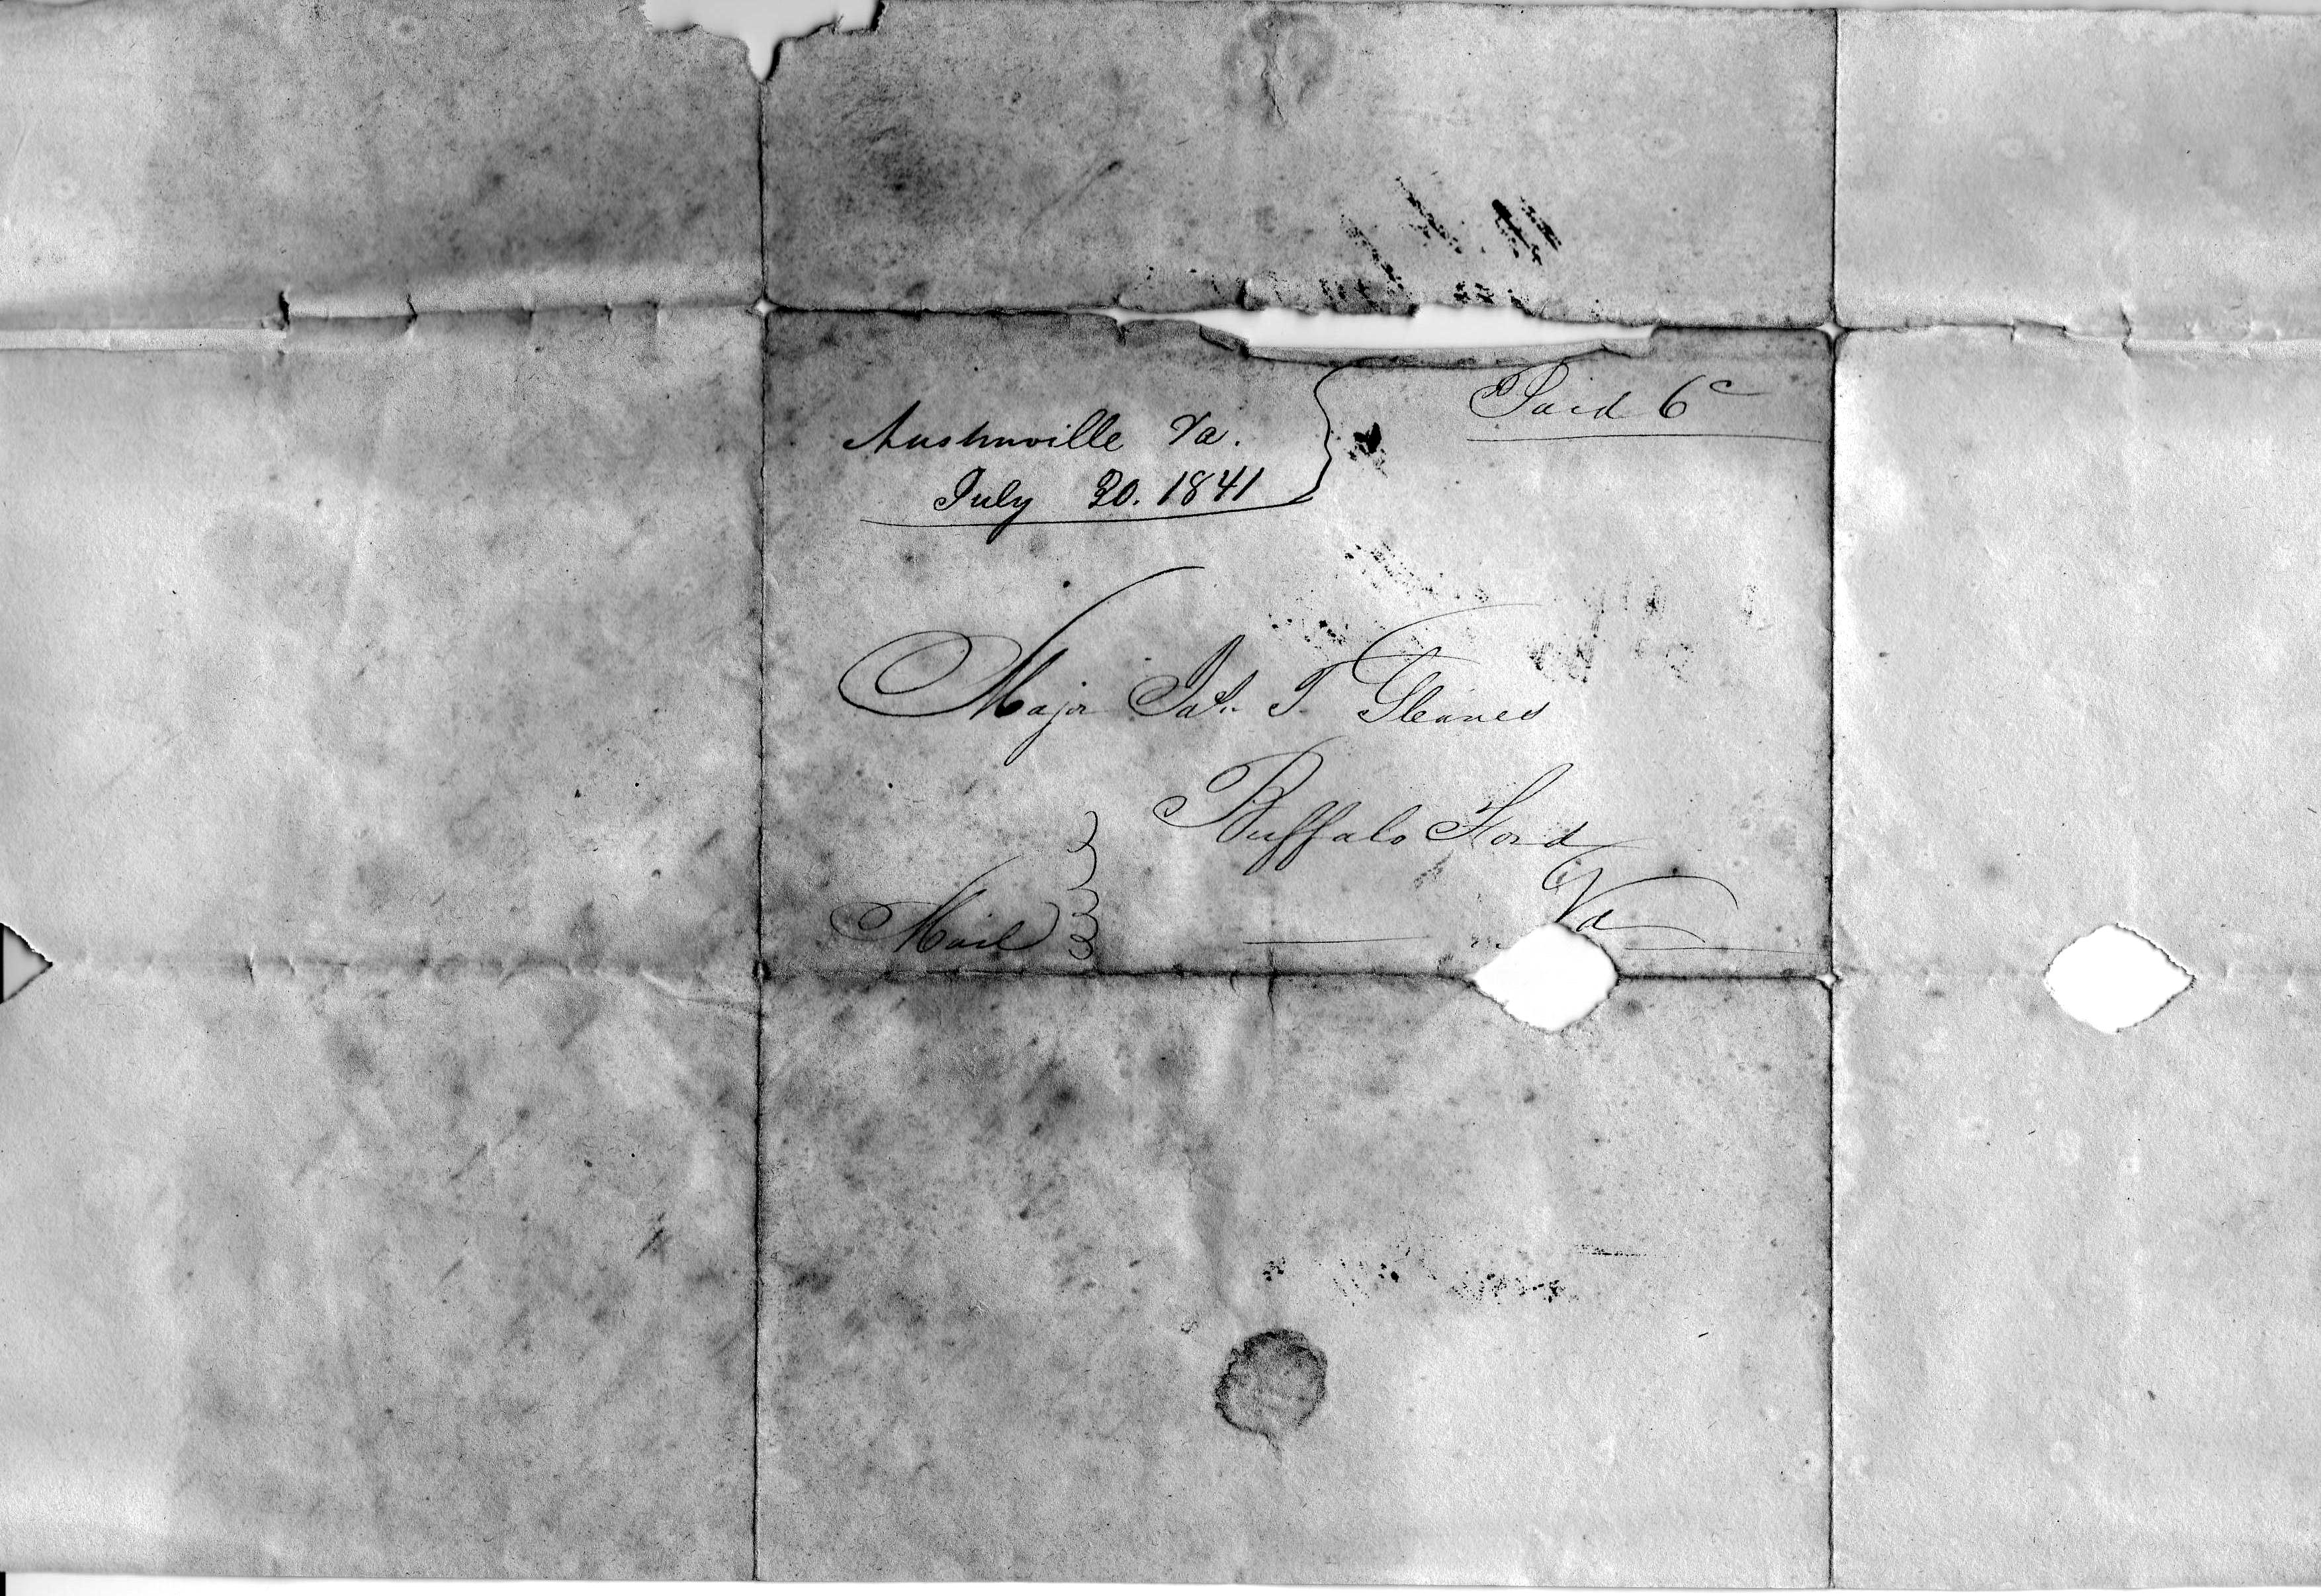 Paid 6c
Austinville Va.
July 20. 1841
Major Jas. T. Gleaves
Buffalo Ford
Va
Mail